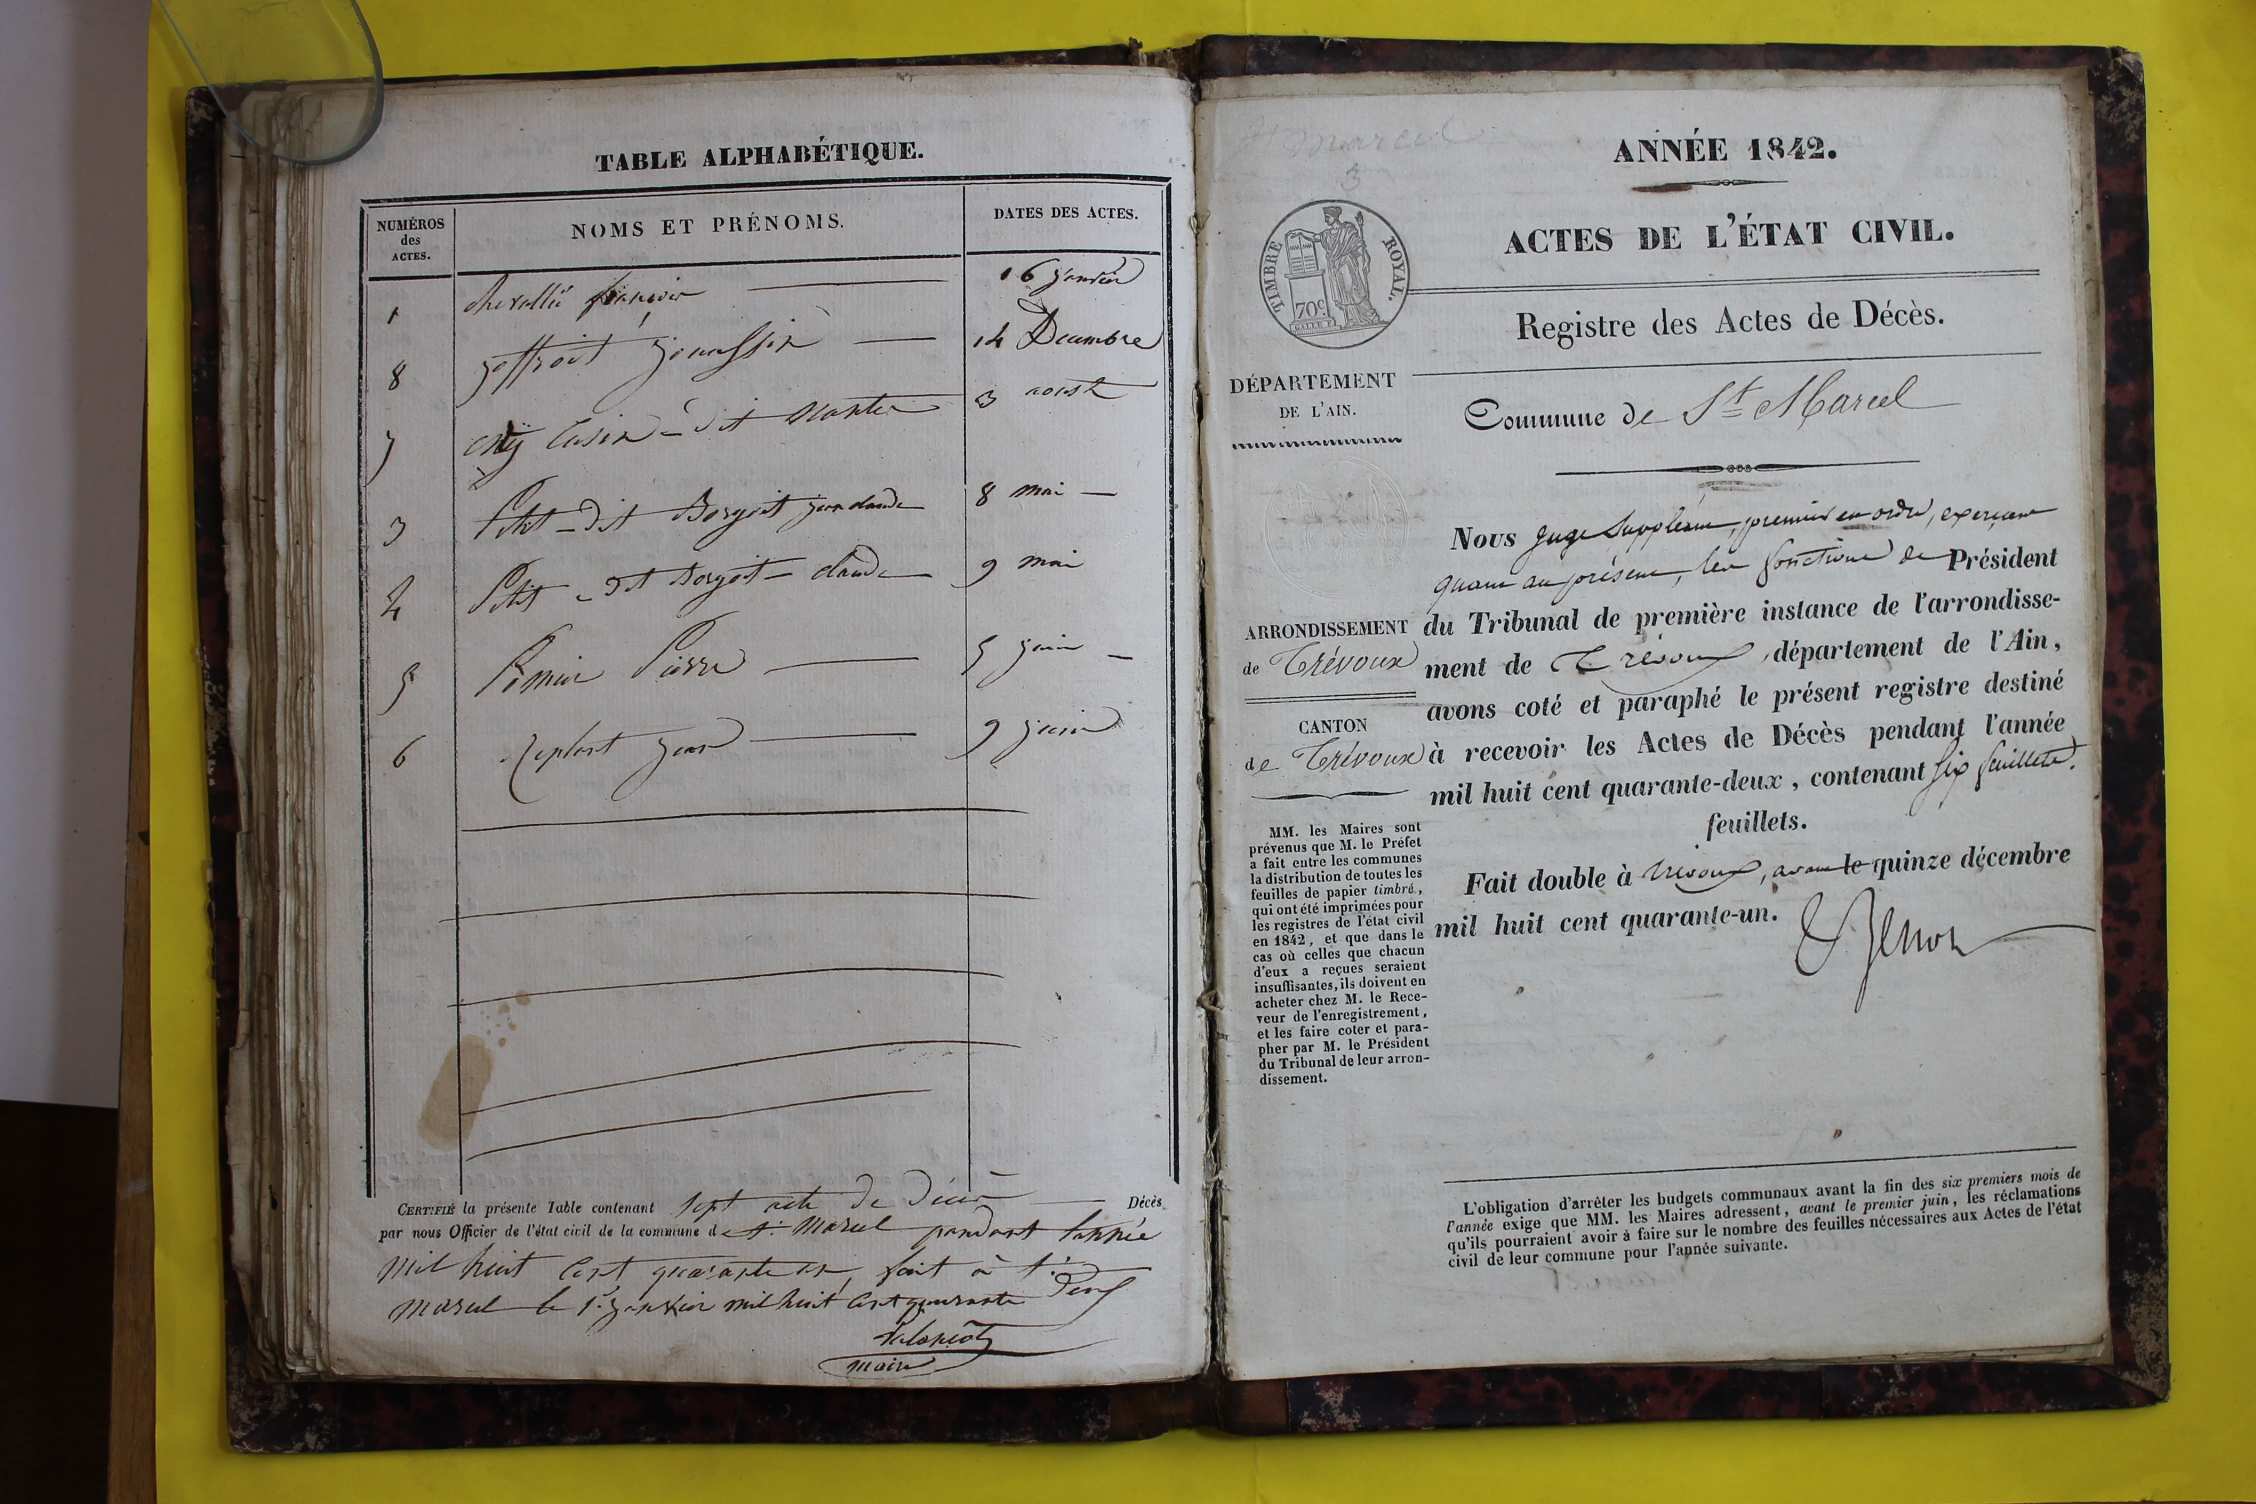 TABLE ALPHABÉTIQUE.
NUMÉROS
des
ACTES.
NOMS ET PRÉNOMS.
DATES DES ACTES.
1 chevallié françois 16 janvier
8 joffroit 14 Decembre
7 dit 3 aoust
3 Petit - dit Borgeit jean claude 8 mai
4 Petit - dit Borgeit - claude 9 mai
5 Pierre 5 juin
6 jean 9 juin
CERTIFIÉ la présente Table contenant sept acte de décès Décès
par nous Officier de l'état civil de la commune de st. marcel pendant l'année
mil huit cent quarante un, fait à st.
marcel le 1er janvier mil huit cent quarante deux
maire
st marcel
3
TIMBRE ROYAL.
70c
ANNÉE 1842.
ACTES DE L'ÉTAT CIVIL.
Registre des Actes de Décès.
DÉPARTEMENT
DE L'AIN.
Commune de St Marcel
ARRONDISSEMENT
de Trévoux
CANTON
de Trévoux
MM. les Maires sont
prévenus que M. le Préfet
a fait entre les communes
la distribution de toutes les
feuilles de papier timbré,
qui ont été imprimées pour
les registres de l'état civil
en 1842, et que dans le
cas où celles que chacun
d'eux a reçues seraient
insuffisantes, ils doivent en
acheter chez M. le Rece-
veur de l'enregistrement,
et les faire coter et para-
pher par M. le Président
du Tribunal de leur arron-
dissement.
Nous Juge Suppléant, premier en ordre, exerçant
quant au présent, les fonctions de Président
du Tribunal de première instance de l'arrondisse-
ment de Trévoux, département de l'Ain,
avons coté et paraphé le présent registre destiné
à recevoir les Actes de Décès pendant l'année
mil huit cent quarante-deux, contenant six feuillets.
feuillets.
Fait double à Trévoux, avant le quinze décembre
mil huit cent quarante-un.
L'obligation d'arrêter les budgets communaux avant la fin des six premiers mois de
l'année exige que MM. les Maires adressent, avant le premier juin, les réclamations
qu'ils pourraient avoir à faire sur le nombre des feuilles nécessaires aux Actes de l'état
civil de leur commune pour l'année suivante.